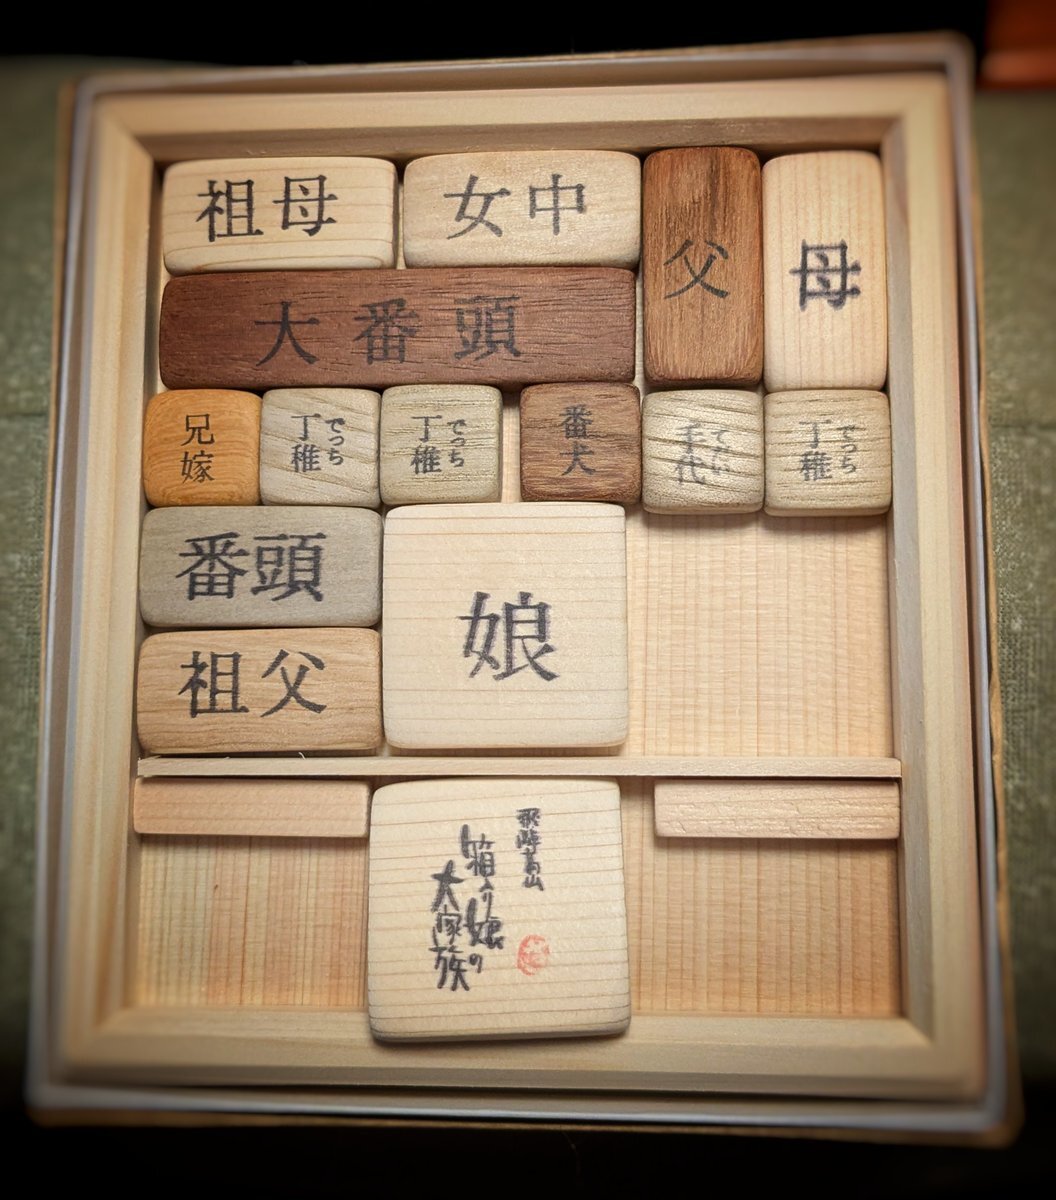 祖母
女中
父
母
大番頭
兄嫁
丁稚
でっち
丁稚
でっち
番犬
手代
てだい
丁稚
でっち
番頭
娘
祖父
飛騨高山
箱入娘の
大家族